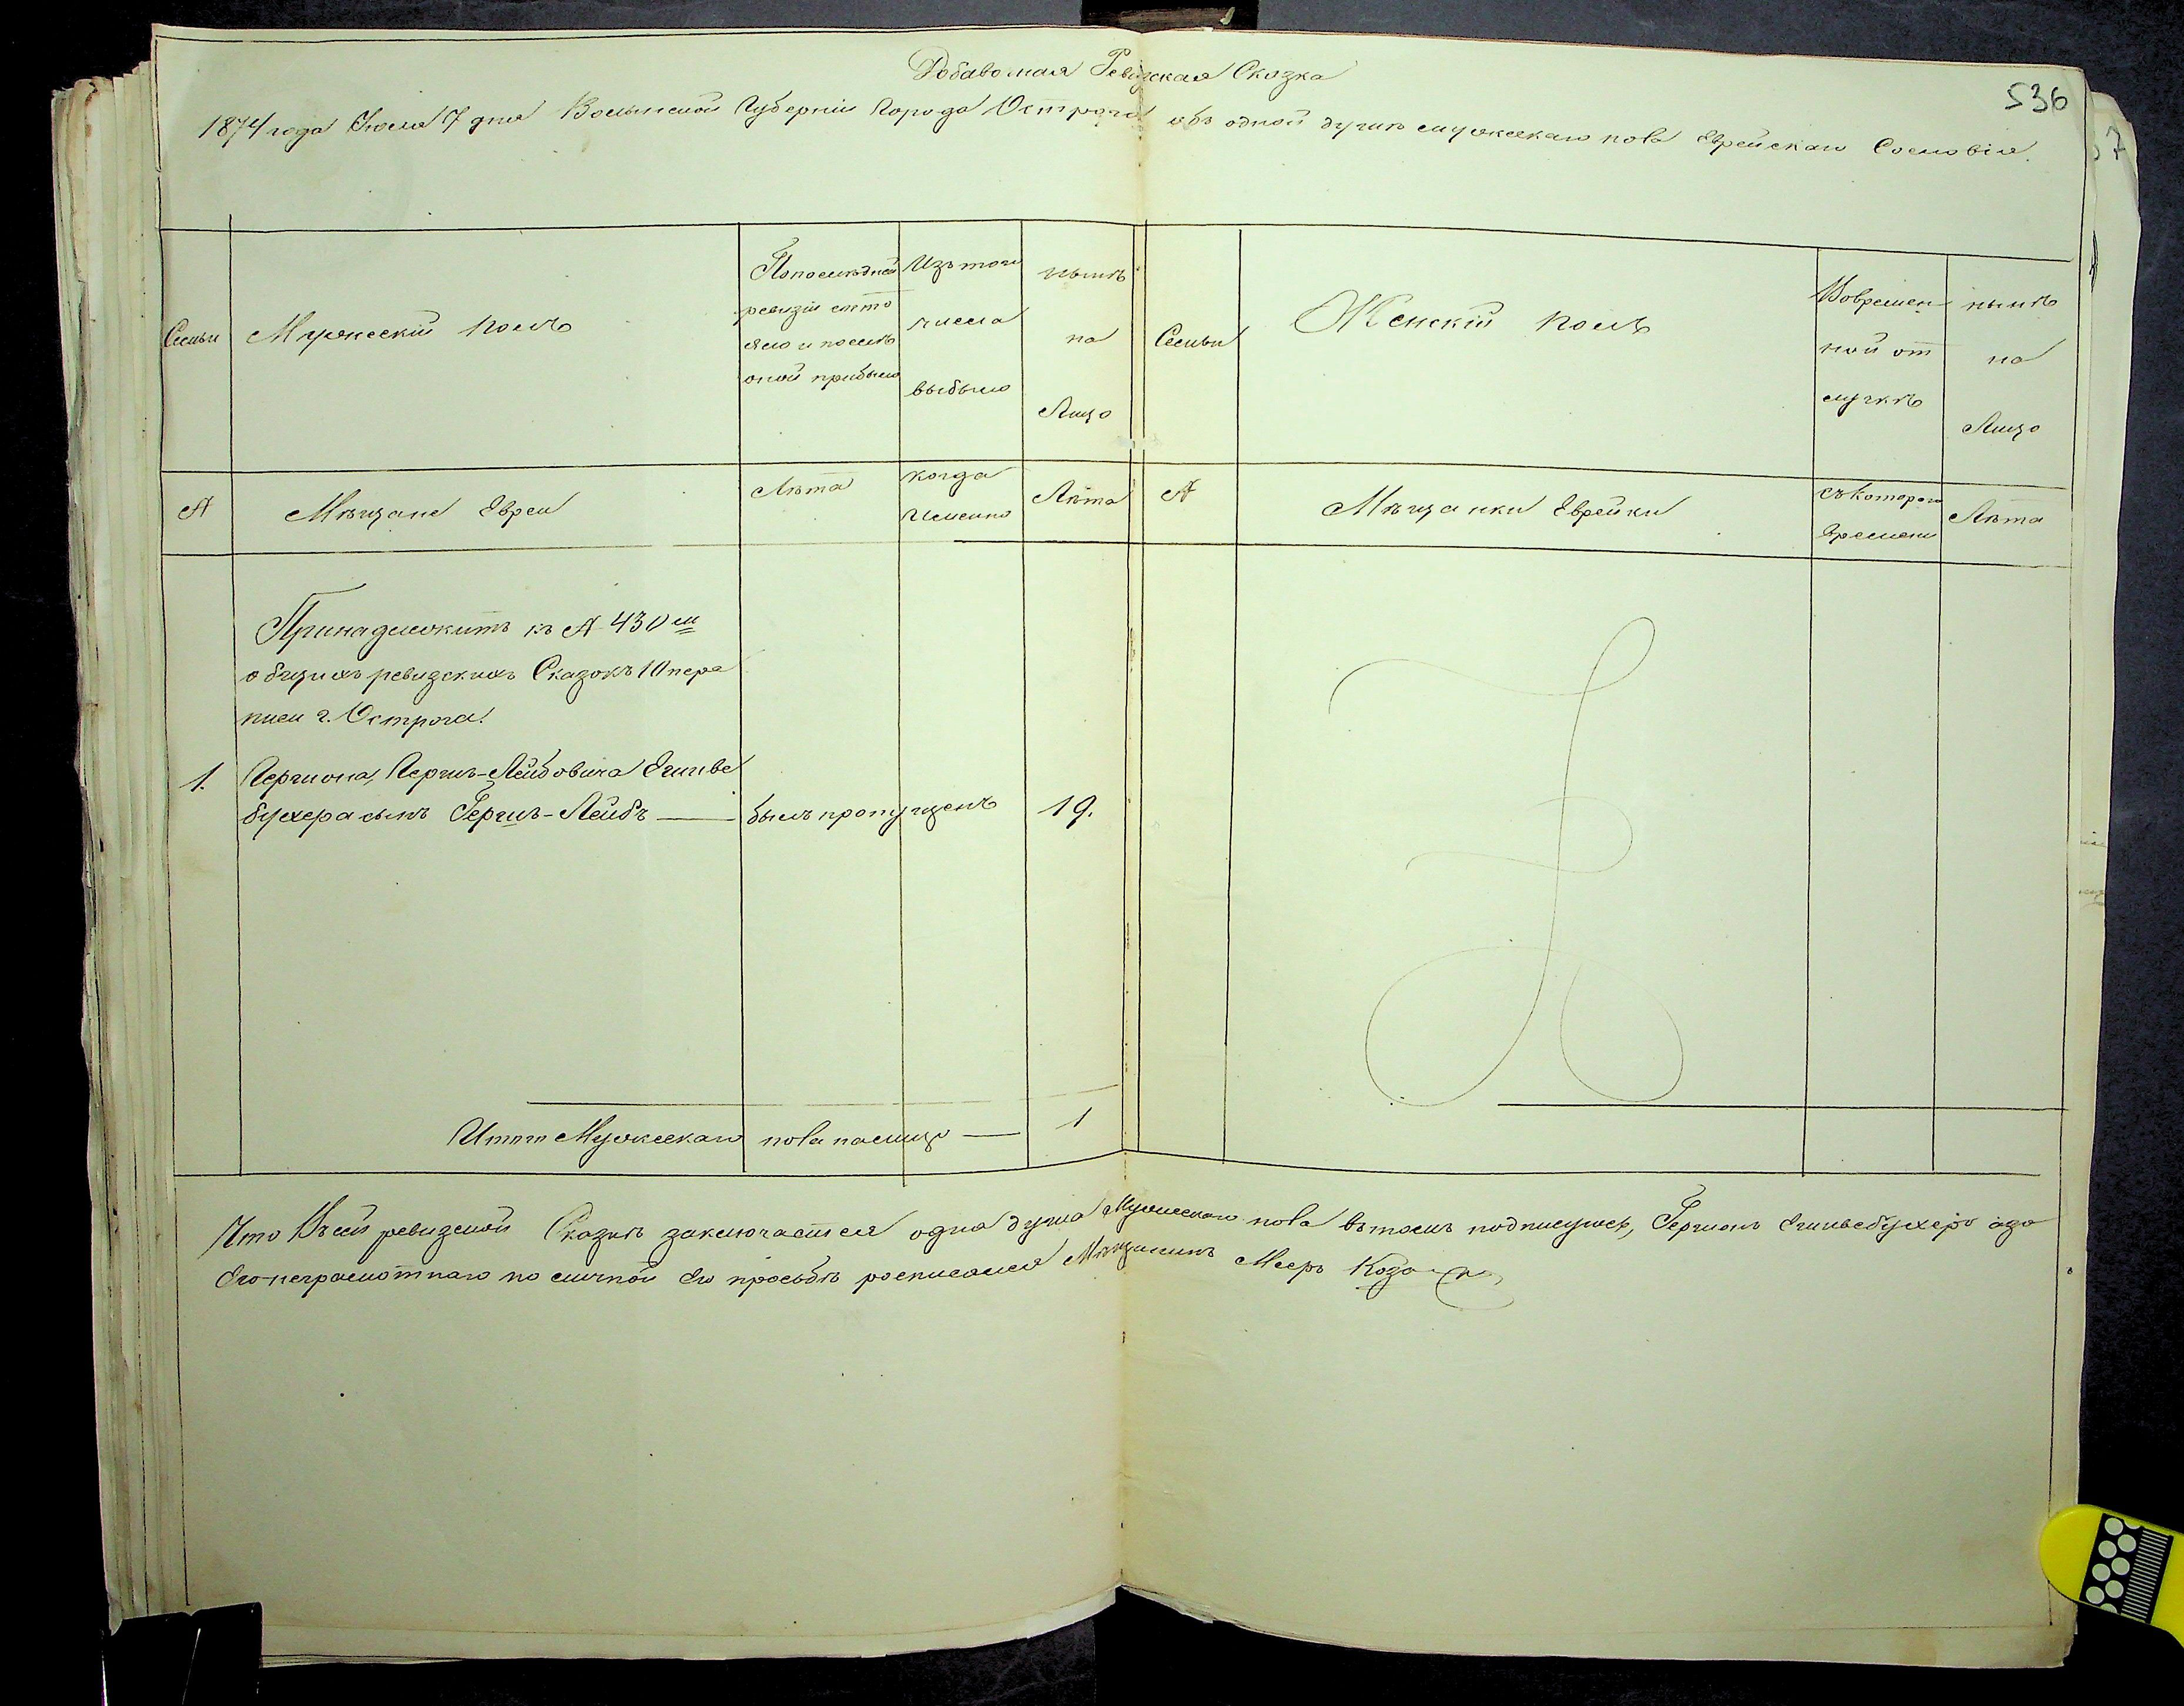 Добавочная Ревизская Сказка
536
1874 года Июля 7 дня Волынской Губерніи Города Острога объ одной душѣ мужескаго пола Еврейскаго Сословія.
7
Семьи
Мужескій полъ
По последней
ревизіи состо
яло и послѣ
оной прибыло
Изъ того
числа
выбыло
нынѣ
на
Лицо
Семьи
Женскій полъ
Вовремен
ной от
лучкѣ
нынѣ
на
Лицо
№
Мѣщане Евреи
Лѣта
когда
именно
Лѣта
№
Мѣщанки Еврейки
съ котораго
времени
Лѣта
Принадлежитъ къ № 430 м
общихъ ревизскихъ Сказокъ 10 пере
писи г. Острога.
1. Гершона, Герш-Лейбовича
бухера сынъ Гершъ-Лейбъ — былъ пропущенъ 19.
Итого Мужескаго пола налицо — 1
Что Въ сей ревизской Сказкѣ заключается одна душа Мужескаго пола вътомъ подписуюсь, Гершонъ а за
Его неграмотнаго по личной Его просьбѣ росписался Мѣщанинъ Мееръ